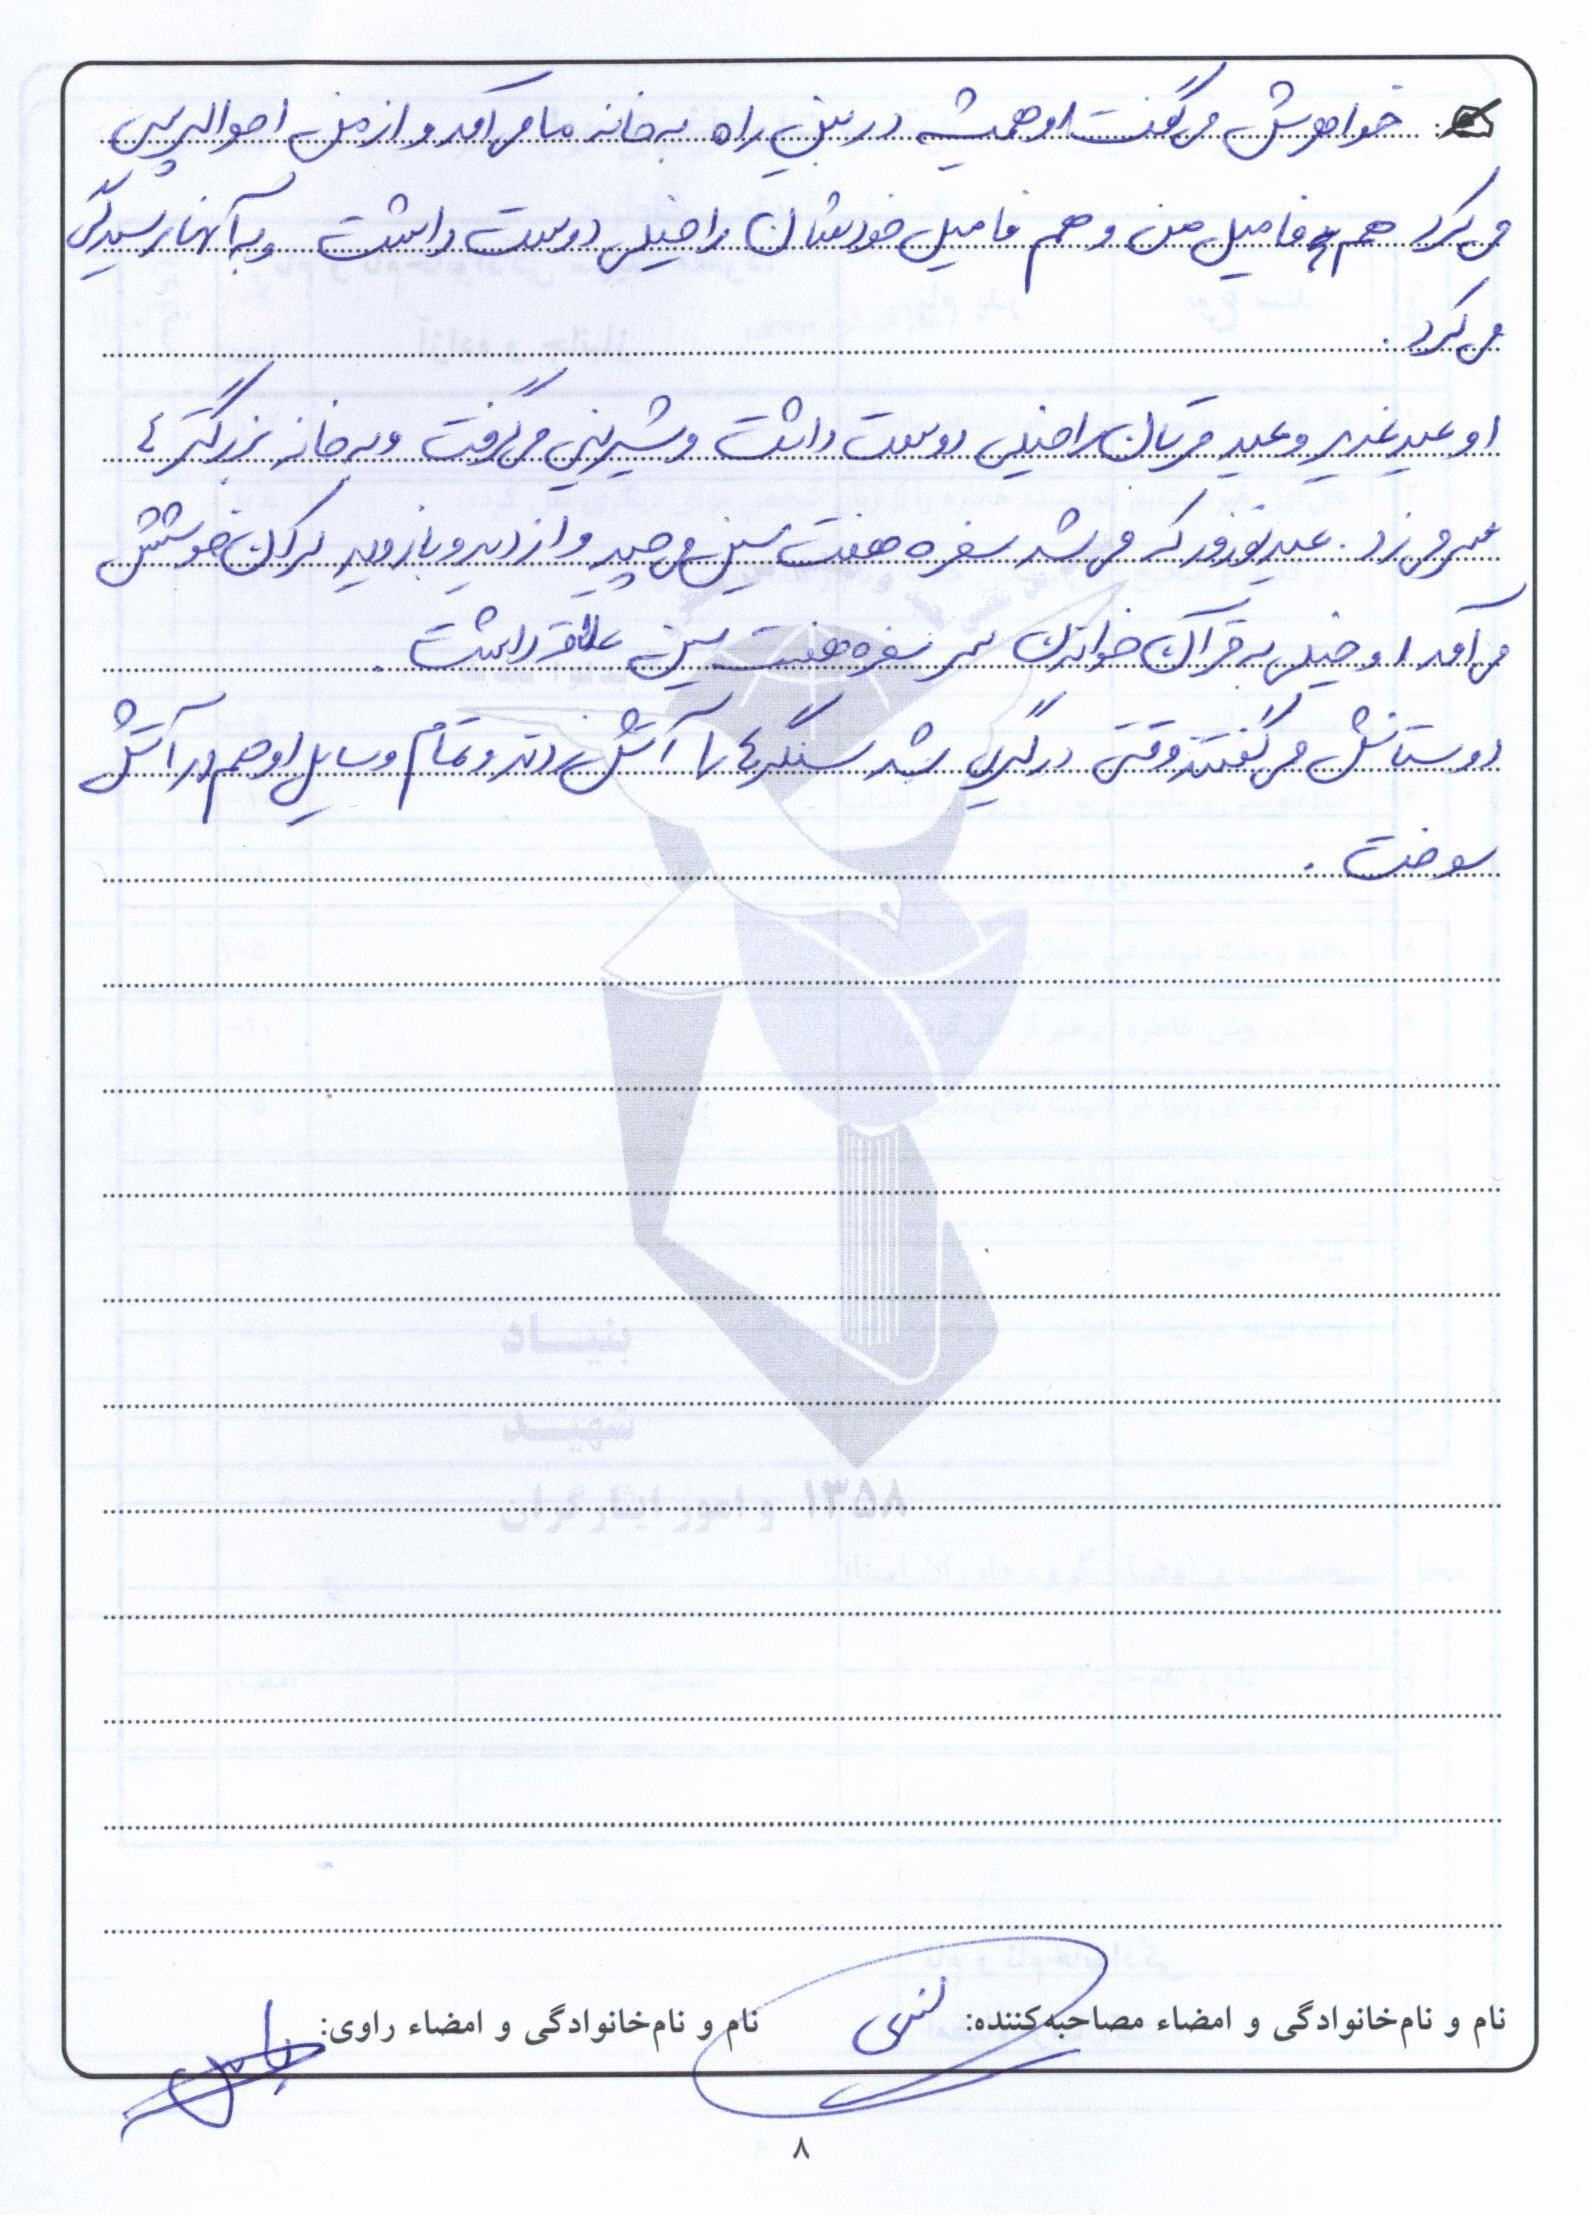 خواهرش می گفت او همیشه در بین راه به خانه ما می آمد و از من احوالپرسی
می کرد هم فامیل من و هم فامیل خودشان را خیلی دوست داشت و به آنها رسیدگی
می کرد.
او عید غدیر و عید قربان را خیلی دوست داشت و شیرینی می گرفت و به خانه بزرگترها
سر می زد. عید نوروز که می شد سفره هفت سین می چید و از دید و بازدید کردن خوشش
می آمد او خیلی به قرآن خواندن سر سفره هفت سین علاقه داشت.
دوستانش می گفتند وقتی درگیری شد سنگرها را آتش زدند و تمام وسایل او هم در آتش
سوخت.
بنیاد
شهید
و امور ایثارگران
۱۳۵۸
نام و نام‌خانوادگی و امضاء مصاحبه‌کننده:
نام و نام‌خانوادگی و امضاء راوی:
۸